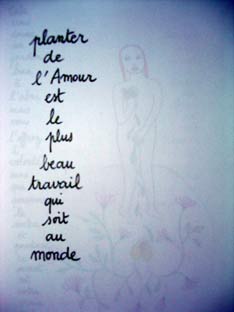 planter
de
l'Amour
est
le
plus
beau
travail
qui
soit
au
monde